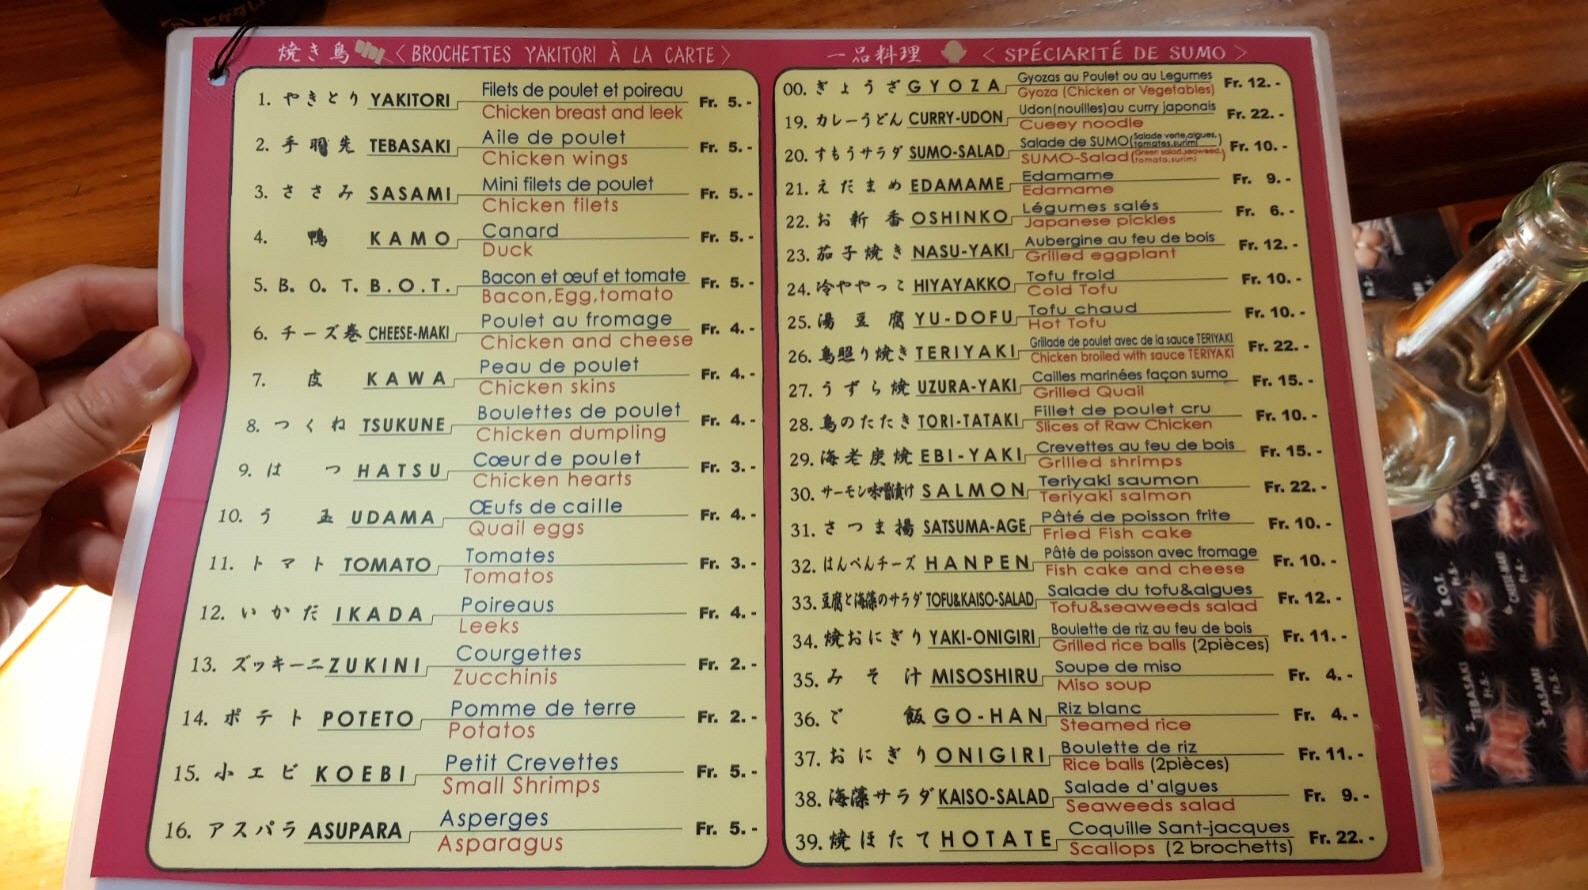 焼き鳥 < BROCHETTES YAKITORI À LA CARTE >
1. やきとり YAKITORI Filets de poulet et poireau Fr. 5.-
Chicken breast and leek
2. 手羽先 TEBASAKI Aile de poulet Fr. 5.-
Chicken wings
3. ささみ SASAMI Mini filets de poulet Fr. 5.-
Chicken filets
4. 鴨 KAMO Canard Fr. 5.-
Duck
5. B. O. T. B.O.T. Bacon et œuf et tomate Fr. 5.-
Bacon,Egg,tomato
6. チーズ巻 CHEESE-MAKI Poulet au fromage Fr. 4.-
Chicken and cheese
7. 皮 KAWA Peau de poulet Fr. 4.-
Chicken skins
8. つくね TSUKUNE Boulettes de poulet Fr. 4.-
Chicken dumpling
9. はつ HATSU Cœur de poulet Fr. 3.-
Chicken hearts
10. う玉 UDAMA Œufs de caille Fr. 4.-
Quail eggs
11. トマト TOMATO Tomates Fr. 3.-
Tomatos
12. いかだ IKADA Poireaus Fr. 4.-
Leeks
13. ズッキーニ ZUKINI Courgettes Fr. 2.-
Zucchinis
14. ポテト POTETO Pomme de terre Fr. 2.-
Potatos
15. 小エビ KOEBI Petit Crevettes Fr. 5.-
Small Shrimps
16. アスパラ ASUPARA Asperges Fr. 5.-
Asparagus
一品料理 < SPÉCIARITÉ DE SUMO >
00. ぎょうざ GYOZA Gyozas au Poulet ou au Legumes Fr. 12.-
Gyoza (Chicken or Vegetables)
19. カレーうどん CURRY-UDON Udon(nouilles)au curry japonais Fr. 22.-
Cueey noodle
20. すもうサラダ SUMO-SALAD Salade de SUMO(Salade verte,algues, tomates,surimi) Fr. 10.-
SUMO-Salad(Green salad,seaweed, tomato,surimi)
21. えだまめ EDAMAME Edamame Fr. 9.-
Edamame
22. お新香 OSHINKO Légumes salés Fr. 6.-
Japanese pickles
23. 茄子焼き NASU-YAKI Aubergine au feu de bois Fr. 12.-
Grilled eggplant
24. 冷ややっこ HIYAYAKKO Tofu froid Fr. 10.-
Cold Tofu
25. 湯豆腐 YU-DOFU Tofu chaud Fr. 10.-
Hot Tofu
26. 鳥照り焼き TERIYAKI Grillade de poulet avec de la sauce TERIYAKI Fr. 22.-
Chicken broiled with sauce TERIYAKI
27. うずら焼 UZURA-YAKI Cailles marinées façon sumo Fr. 15.-
Grilled Quail
28. 鳥のたたき TORI-TATAKI Fillet de poulet cru Fr. 10.-
Slices of Raw Chicken
29. 海老炭焼 EBI-YAKI Crevettes au feu de bois Fr. 15.-
Grilled shrimps
30. サーモン味噌漬け SALMON Teriyaki saumon Fr. 22.-
Teriyaki salmon
31. さつま揚 SATSUMA-AGE Pâté de poisson frite Fr. 10.-
Fried Fish cake
32. はんぺんチーズ HANPEN Pâté de poisson avec fromage Fr. 10.-
Fish cake and cheese
33. 豆腐と海藻のサラダ TOFU&KAISO-SALAD Salade du tofu&algues Fr. 12.-
Tofu&seaweeds salad
34. 焼おにぎり YAKI-ONIGIRI Boulette de riz au feu de bois Fr. 11.-
Grilled rice balls (2pièces)
35. みそ汁 MISOSHIRU Soupe de miso Fr. 4.-
Miso soup
36. ご飯 GO-HAN Riz blanc Fr. 4.-
Steamed rice
37. おにぎり ONIGIRI Boulette de riz Fr. 11.-
Rice balls (2pièces)
38. 海藻サラダ KAISO-SALAD Salade d'algues Fr. 9.-
Seaweeds salad
39. 焼ほたて HOTATE Coquille Sant-jacques Fr. 22.-
Scallops (2 brochetts)
2. TEBASAKI
3. SASAMI
5. B.O.T.
6. CHEESE-MAKI